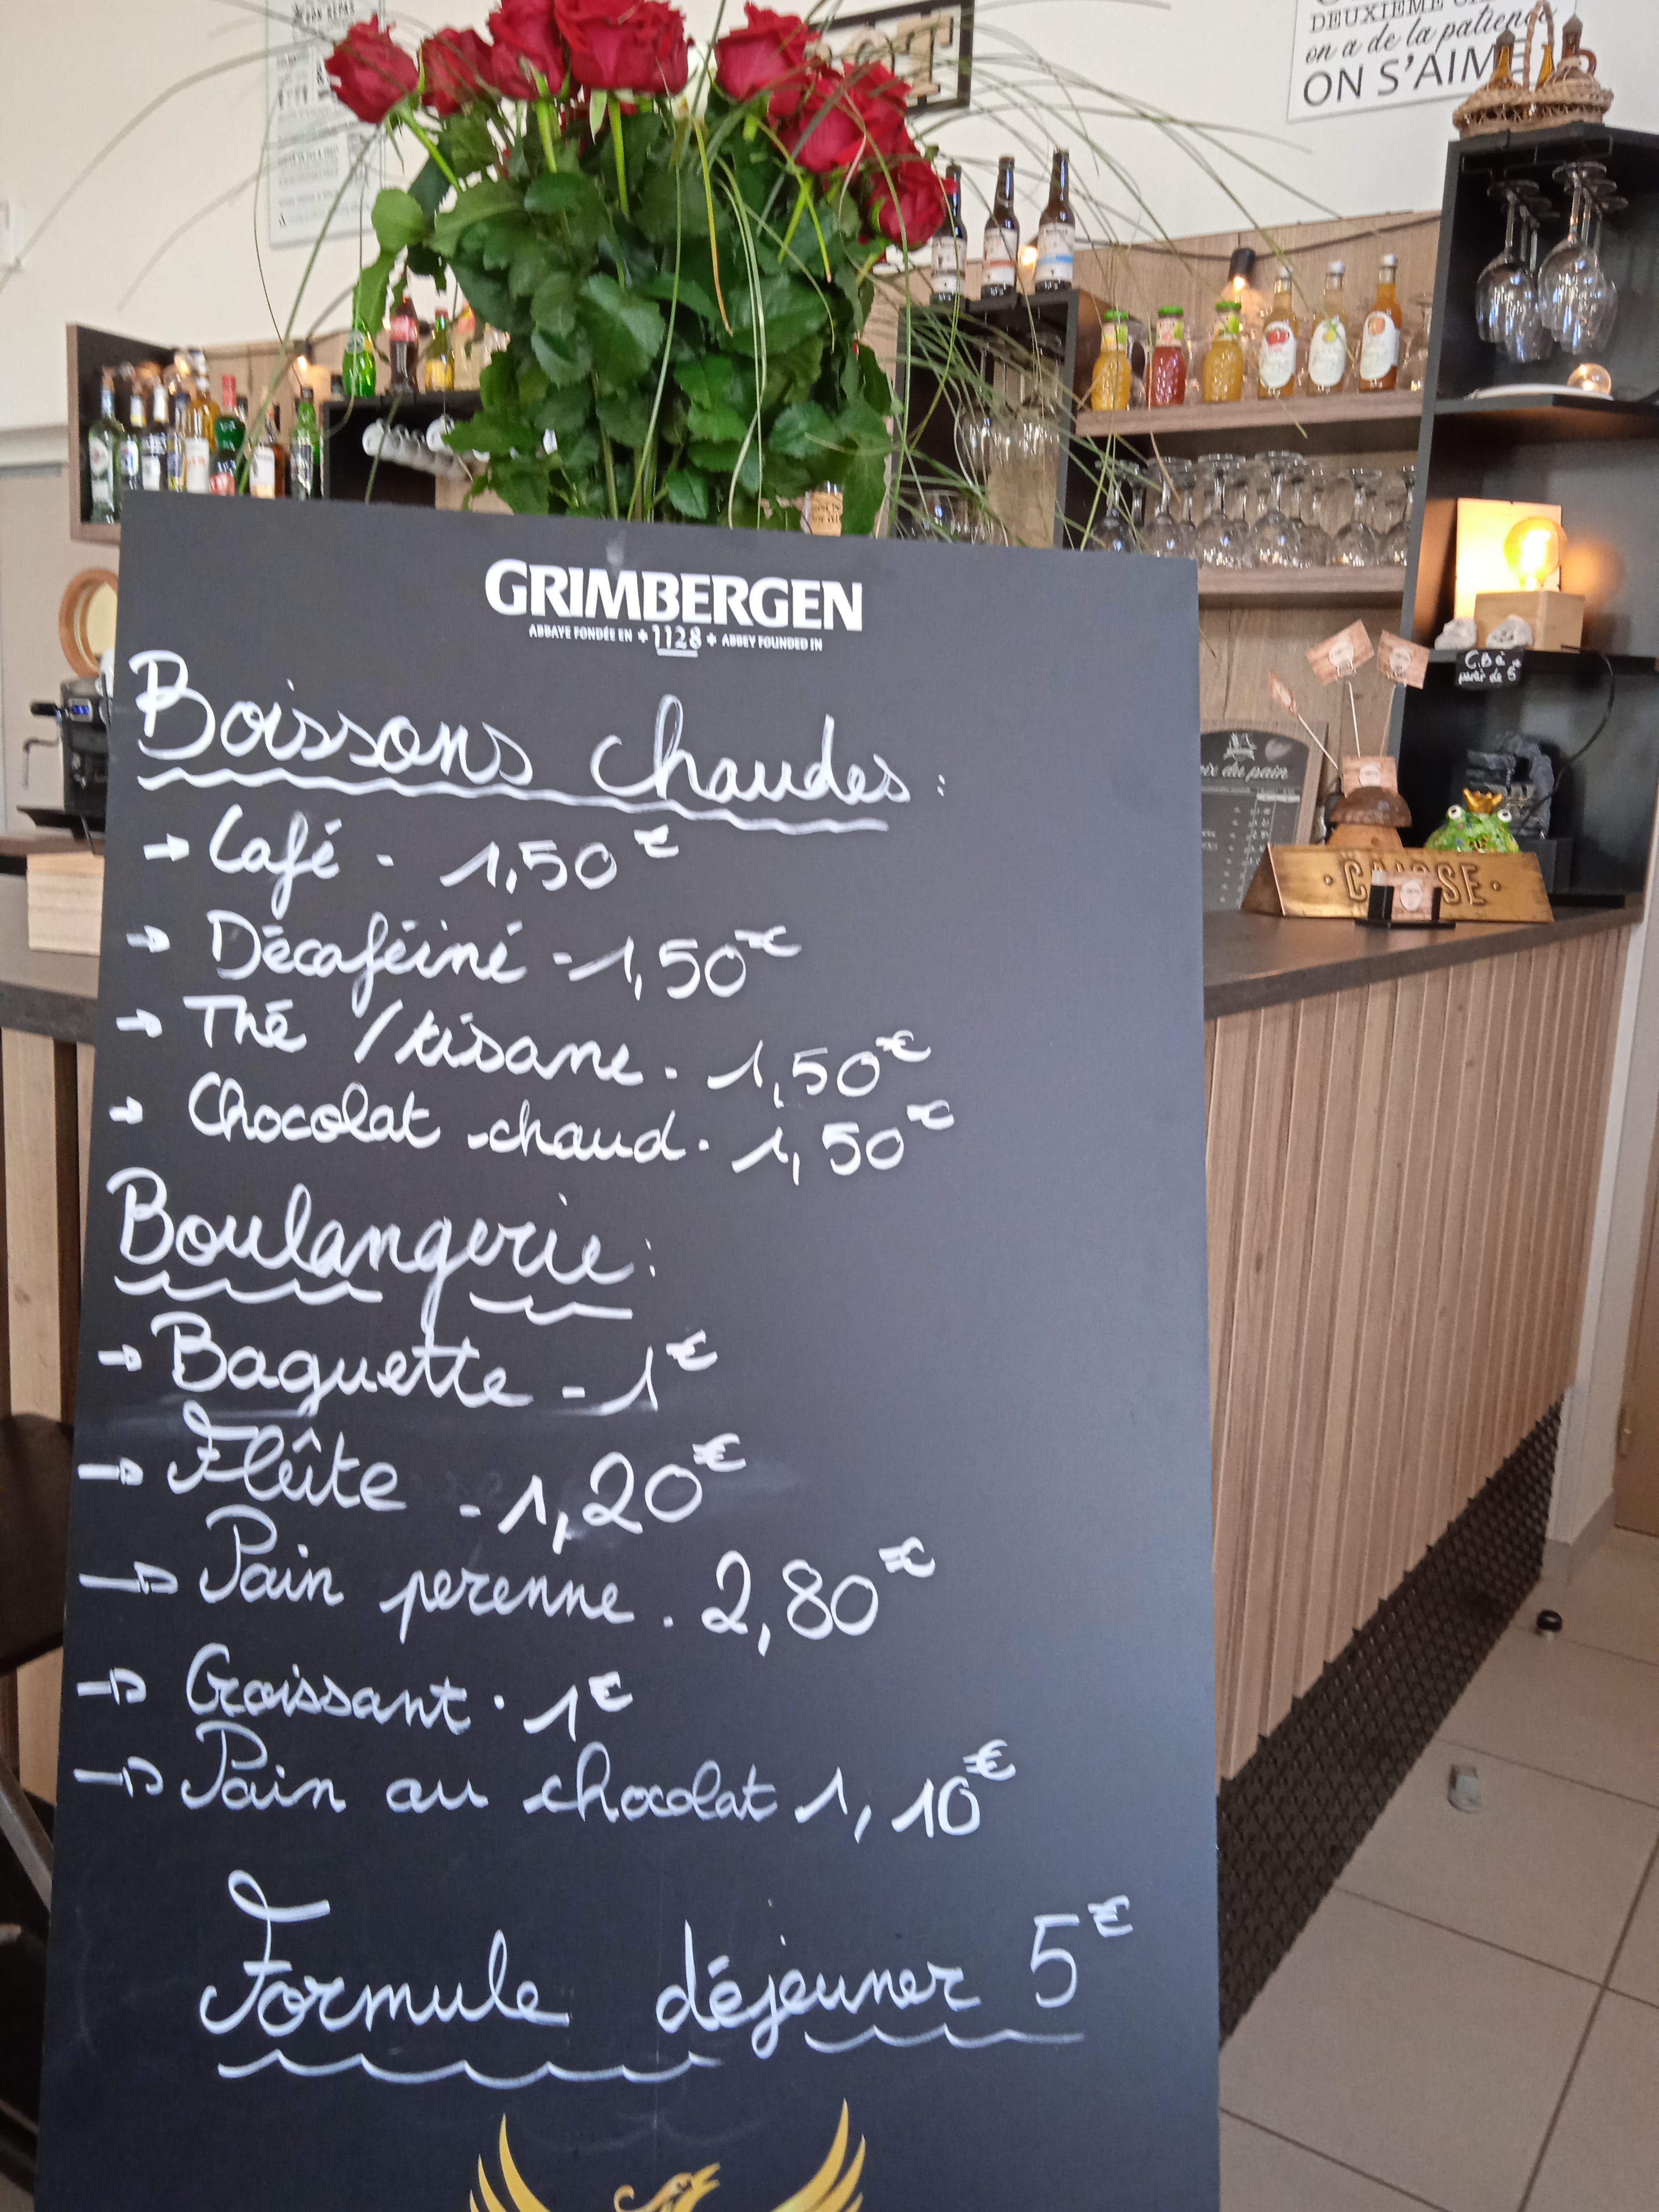 DEUXIÈME
on a de la patience
ON S'AIME
GRIMBERGEN
ABBAYE FONDÉE EN + 1128 + ABBEY FOUNDED IN
Boissons chaudes :
→ Café - 1,50€
→ Décaféiné - 1,50€
→ Thé / tisane - 1,50€
→ Chocolat chaud - 1,50€
Boulangerie :
→ Baguette - 1€
→ Flûte - 1,20€
→ Pain perenne - 2,80€
→ Croissant - 1€
→ Pain au chocolat 1,10€
Formule déjeuner 5€
C.B à
partir de 5€
du pain
CAISSE